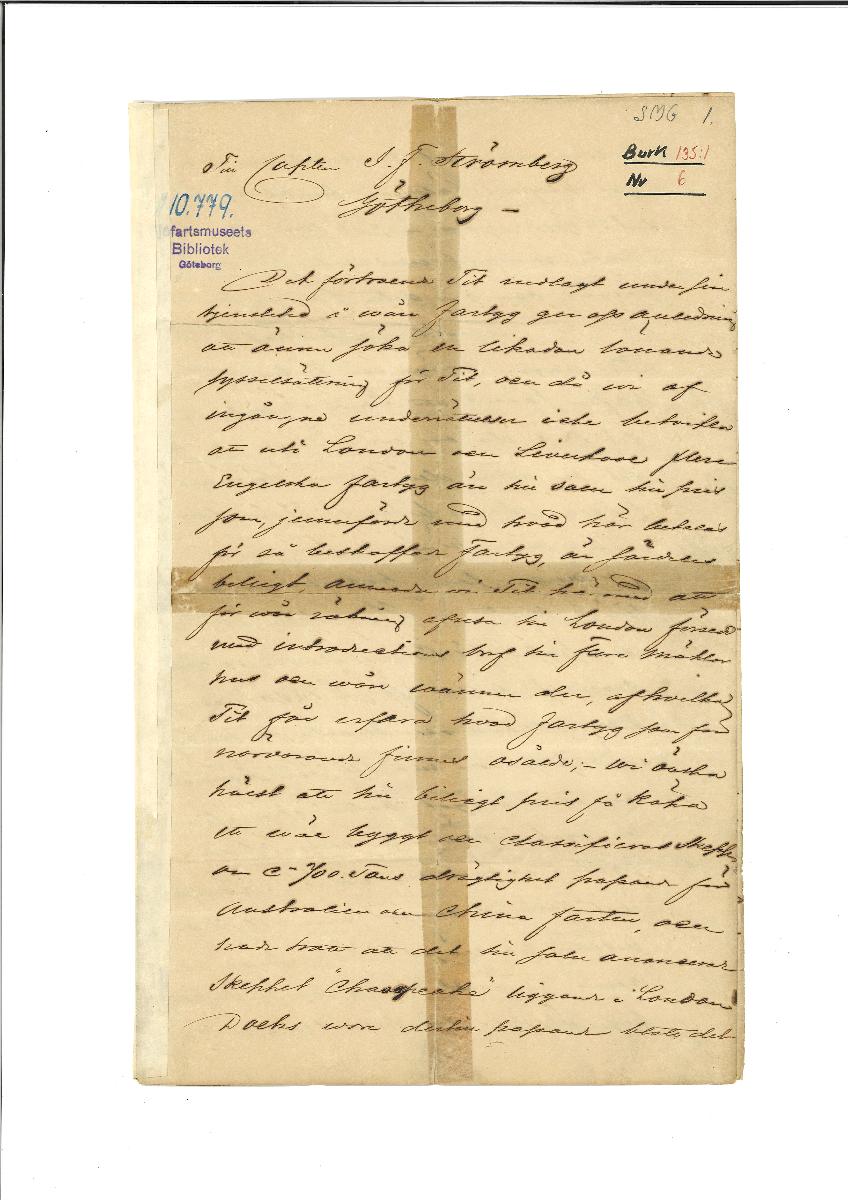 SMG 1.
Burk 135:1
Nr 6
Till Capten J. F. Strömberg
Götheborg –
10.779.
fartsmuseets
Bibliotek
Göteborg
Det förtroende Tit nedlagt under sin
tjenstetid i wåra fartyg ger oss anledning
att ännu söka en likadan lönande
sysselsättning för Tit, och då wi af
ingångne underrättelser icke betvifla
att uti London och Liverpool flere
Engelska fartyg än till salu till pris
som, jemnförde med hvad här betalas
för så beskaffade fartyg, är särdeles
billigt, anmode vi Tit härmed att
för wår räkning afresa till London försedd
med introductions bref till flere mäklar
hus och wåra wänner der, af hvilka
Tit får erfara hvad fartyg som för
närvarande finnes osålde; – Wi önska
hälst att till billigt pris få köpa
ett wäl byggt och classificerat Skepp
om ca 700. Tons drägtighet passande för
Australien och China farten, och
skulle tro att det till salu annoncerade
Skeppet "Chaespeake" liggande i London
Docks wore dertill passande blott det